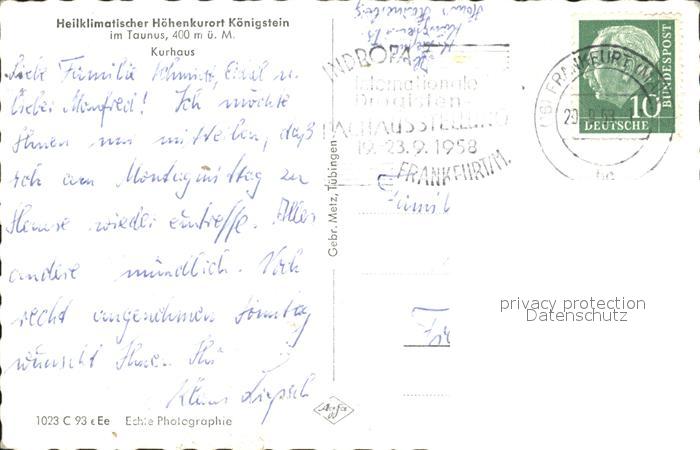 Heilklimatischer Höhenkurort Königstein
im Taunus, 400 m ü. M.
Kurhaus
Liebe Familie Schmitt, Edel u.
lieber Manfred! Ich möchte
Ihnen nur mitteilen, daß
ich am Montagmittag zu
Hause wieder eintreffe. Alles
andere mündlich. Noch
recht angenehmen Sonntag
wünscht Ihnen Ihr
Klaus
1023 C 93 Ee Echte Photographie
Gebr. Metz, Tübingen
Agfa
INDROFA
Internationale
Drogisten-
FACHAUSSTELLUNG
19.-23.9.1958
FRANKFURT/M.
Famil
FRANKFURT (MAIN)
10
DEUTSCHE
BUNDESPOST
privacy protection
Datenschutz